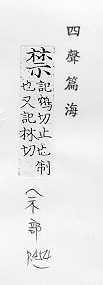 四聲篇海
禁
記鴆切止也制
也又記林切
(示部